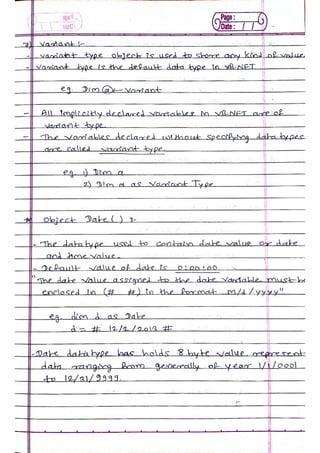 Page:
Date: / /
7) Variant :-
- variant type object is used to store any kind of value.
- variant type is the default data type in VB.NET
eg Dim a - Variant
- All implicitly declared variables in VB.NET are of
variant type.
- The variables declared without specifying data types
are called variant type.
eg. 1) Dim a
2) Dim a as variant Type
* Object Date ( ) :-
- The datatype used to contain date value or date
and time value.
- Default value of date is 0:00:00.
"The date value assigned to the date variable must be
enclosed in (# #) in the format m/d/yyyy"
eg. dim d as Date
d = # 12/2/2013 #
- Date datatype has holds 8 byte value represent
data ranging from generally of year 1/1/0001
to 12/31/9999.